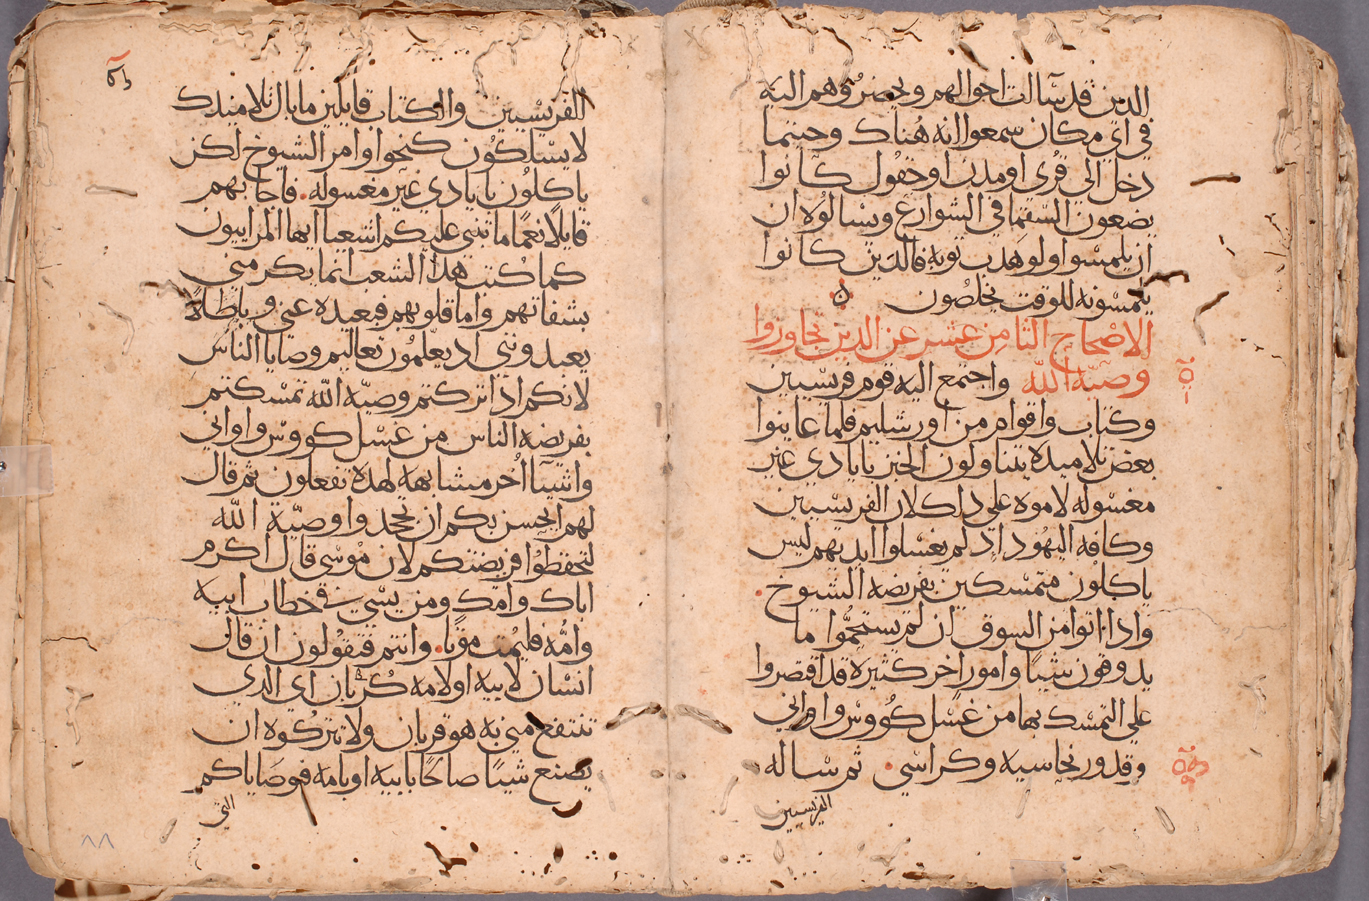 الدين قد سالت احوالهم ويحضروهم اليه
في اي مكان سمعوا انه هناك وحيثما
دخل الى قرى او مدن او حقول كانوا
يضعون السقما في الشوارع ويسالوه ان
ان يلمسوا ولو هدب ثوبه فالدين كانوا
يلمسونه للوقت يخلصون ه
الاصحاح الثامن عشر عن الدين تجاوزوا
وصية الله واجتمع اليه قوم فريسيين
وكتاب واقوام من اورشليم فلما عاينوا
بعض تلاميده يتناولون الخبز بايادي غير
مغسوله لاموه على دلك لان الفريسيين
وكافه اليهود اد لم يغسلوا ايديهم ليس
ياكلون متمسكين بفريضه الشيوخ
وادا اتوا من السوق ان لم يستحموا ما
يدوقون شيا وامور اخر كثيرة قد اقتصروا
على التمسك بها من غسل كووس واواني
وقدور نحاسيه وكراسي ثم ساله
الفريسيين
الفريسيين والكتاب قايلين ما بال تلاميدك
لا يسلكون كنحو اوامر الشيوخ لكن
ياكلون بايادي غير مغسوله فاجابهم
قايلا نعما ما تنبى عليكم اشعيا ايها المراييون
كما كتب هدا الشعب انما يكرمني
بشفاتهم واما قلوبهم فبعيده عني وباطلا
يعبدونني اد يعلمون تعاليم وصايا الناس
لانكم ادا تركتم وصيه الله تمسكتم
بفريضه الناس من غسل كووس واواني
واشيا اخر مشابهة لهده تفعلون ثم قال
لهم ايحسن بكم ان تجحدوا وصية الله
لتحفظوا فريضتكم لان موسى قال اكرم
اباك وامك ومن يسي في خطاب ابيه
وامه فليمت موتا وانتم فتقولون ان قال
انسان لابيه او لامه كربان اي الدي
تنتفع مني به هو قربان ولا تتركوه ان
يصنع شيا صالحا بابيه او بامه فوصاياكم
التي
٨٨